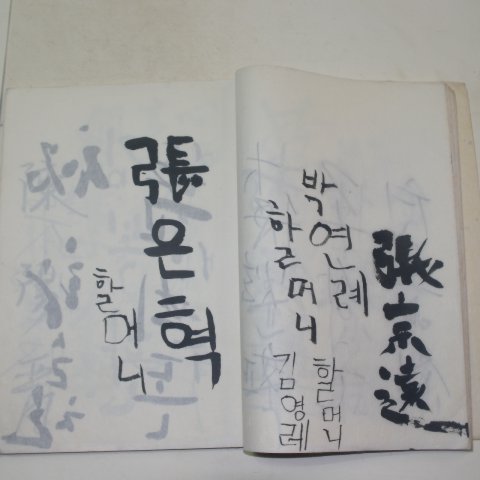 張宗遠
박연례
할머니
할머니
김영례
張은혁
할머니